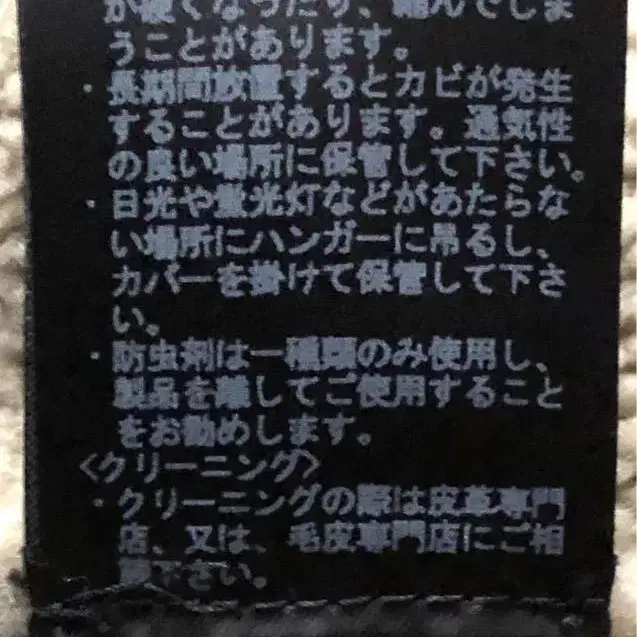 が硬くなったり、縮んでしま
うことがあります。
・長期間放置するとカビが発生
することがあります。通気性
の良い場所に保管して下さい。
・日光や蛍光灯などがあたらな
い場所にハンガーに吊るし、
カバーを掛けて保管して下さ
い。
・防虫剤は一種類のみ使用し、
製品を離してご使用すること
をお勧めします。
<クリーニング>
・クリーニングの際は皮革専門
店、又は、毛皮専門店にご相
談下さい。